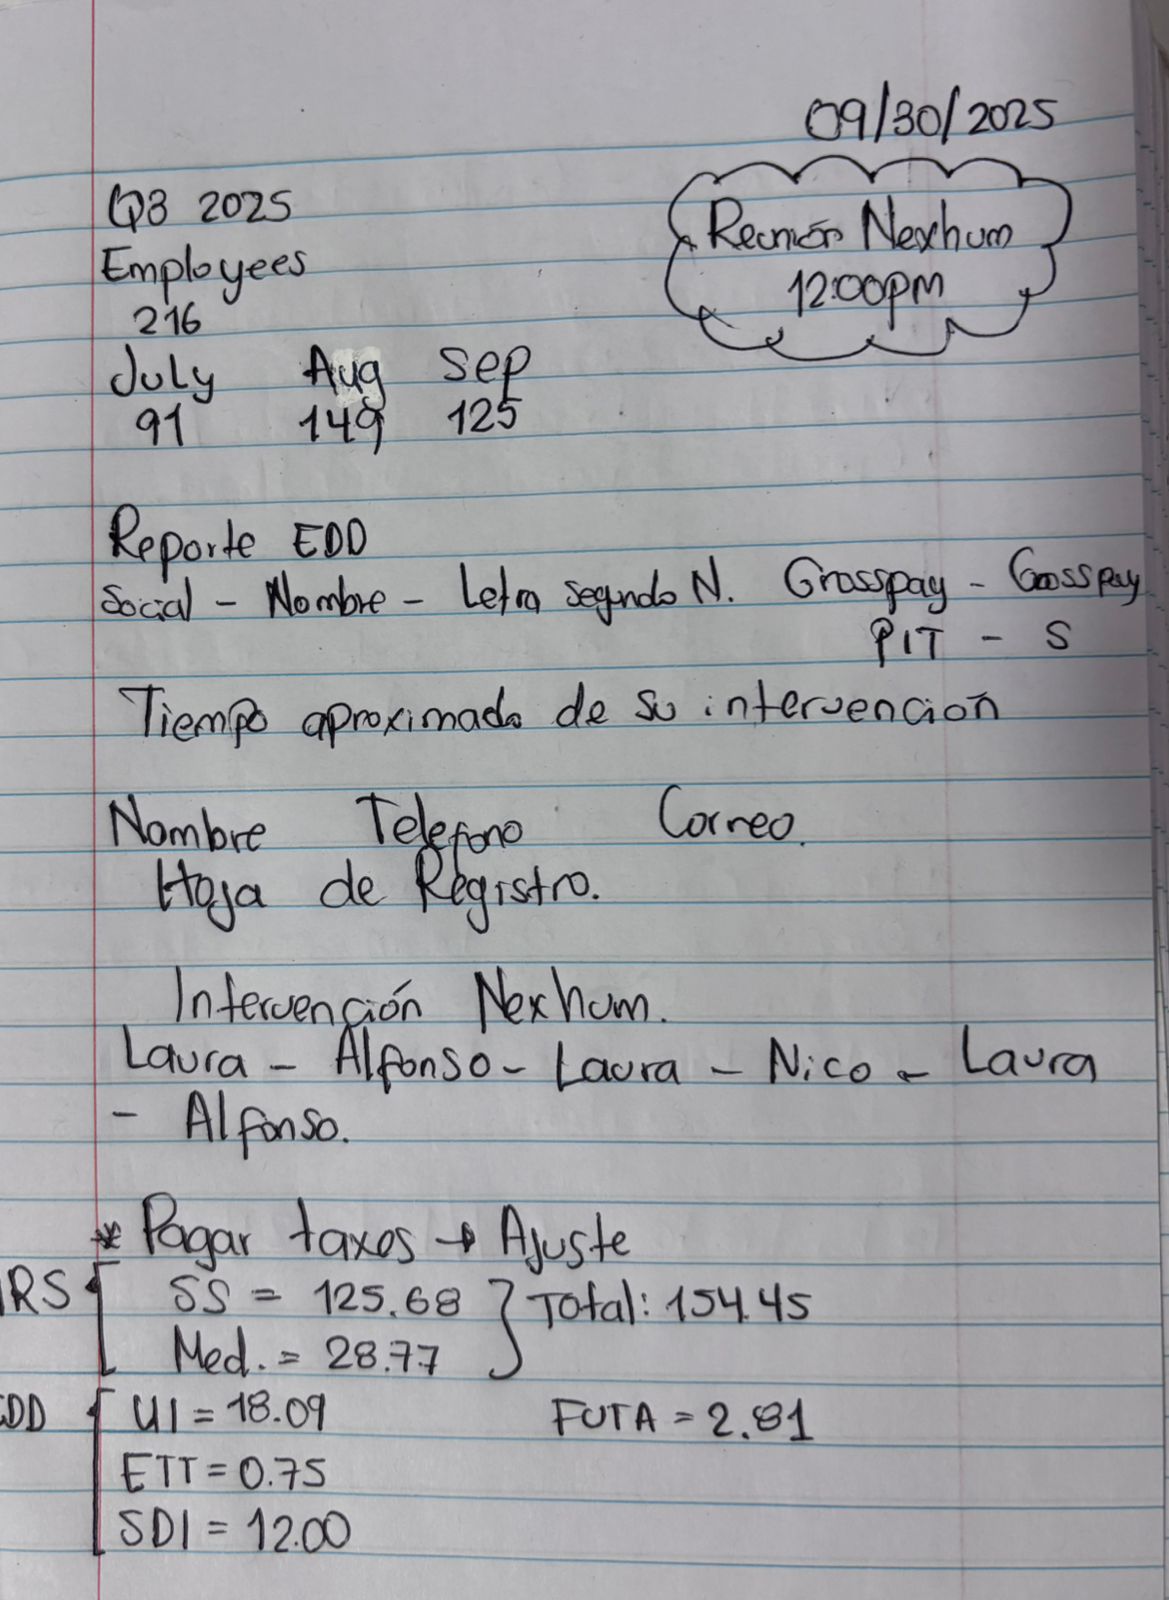 09/30/2025
Q3 2025
Reunión Nexhum
12:00pm
Employees
216
July Aug Sep
91 149 125
Reporte EDD
Social - Nombre - Letra segundo N. Grosspay - Grosspay
PIT - S
Tiempo aproximado de su intervención
Nombre Telefono Correo.
Hoja de Registro.
Intervención Nexhum.
Laura - Alfonso - Laura - Nico - Laura
- Alfonso.
* Pagar taxes → Ajuste
IRS [ SS = 125.68 } Total: 154.45
Med. = 28.77
EDD [ UI = 18.09 FUTA = 2.81
ETT = 0.75
SDI = 12.00